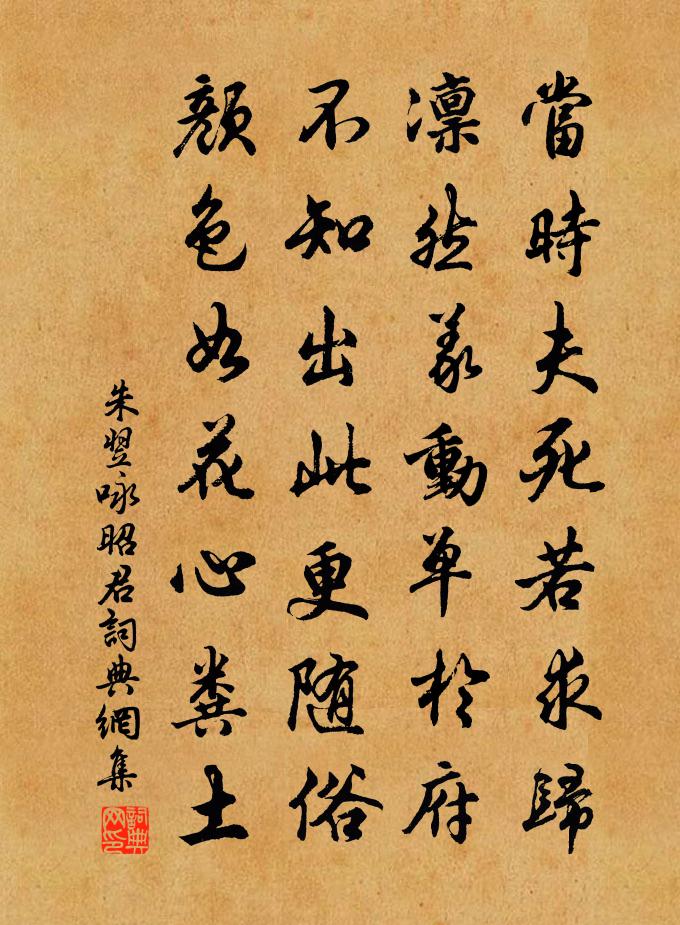 當時夫死若求歸
凛然義動單於府
不知出此更随俗
顏色如花心糞土
朱翌咏昭君詞典網集
詞典網印